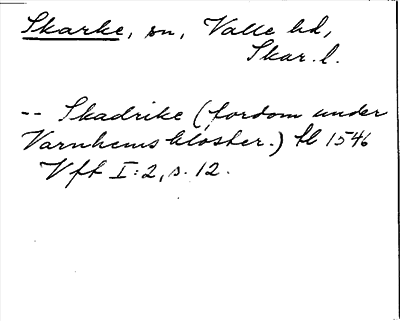 Skarke, sn, Valle hd,
Skar. l.
-- Skadrike (fordom under
Varnhems kloster.) tb 1546
Vft I:2, s. 12.